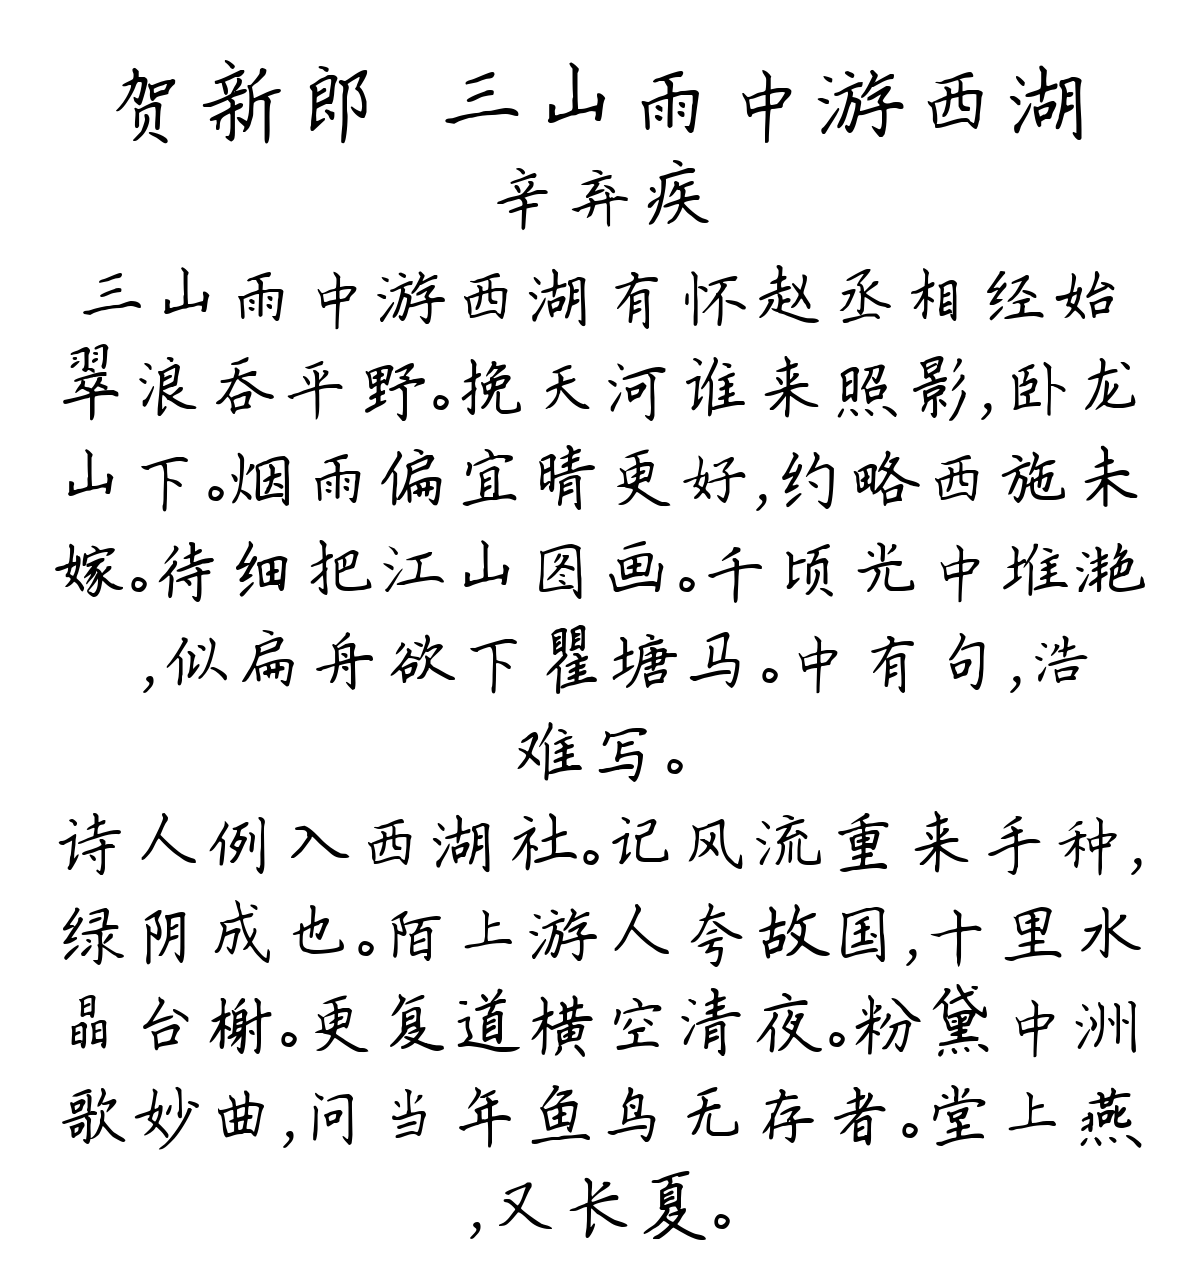 贺新郎 三山雨中游西湖
辛弃疾
三山雨中游西湖有怀赵丞相经始
翠浪吞平野。挽天河谁来照影,卧龙
山下。烟雨偏宜晴更好,约略西施未
嫁。待细把江山图画。千顷光中堆滟
,似扁舟欲下瞿塘马。中有句,浩
难写。
诗人例入西湖社。记风流重来手种,
绿阴成也。陌上游人夸故国,十里水
晶台榭。更复道横空清夜。粉黛中洲
歌妙曲,问当年鱼鸟无存者。堂上燕
,又长夏。